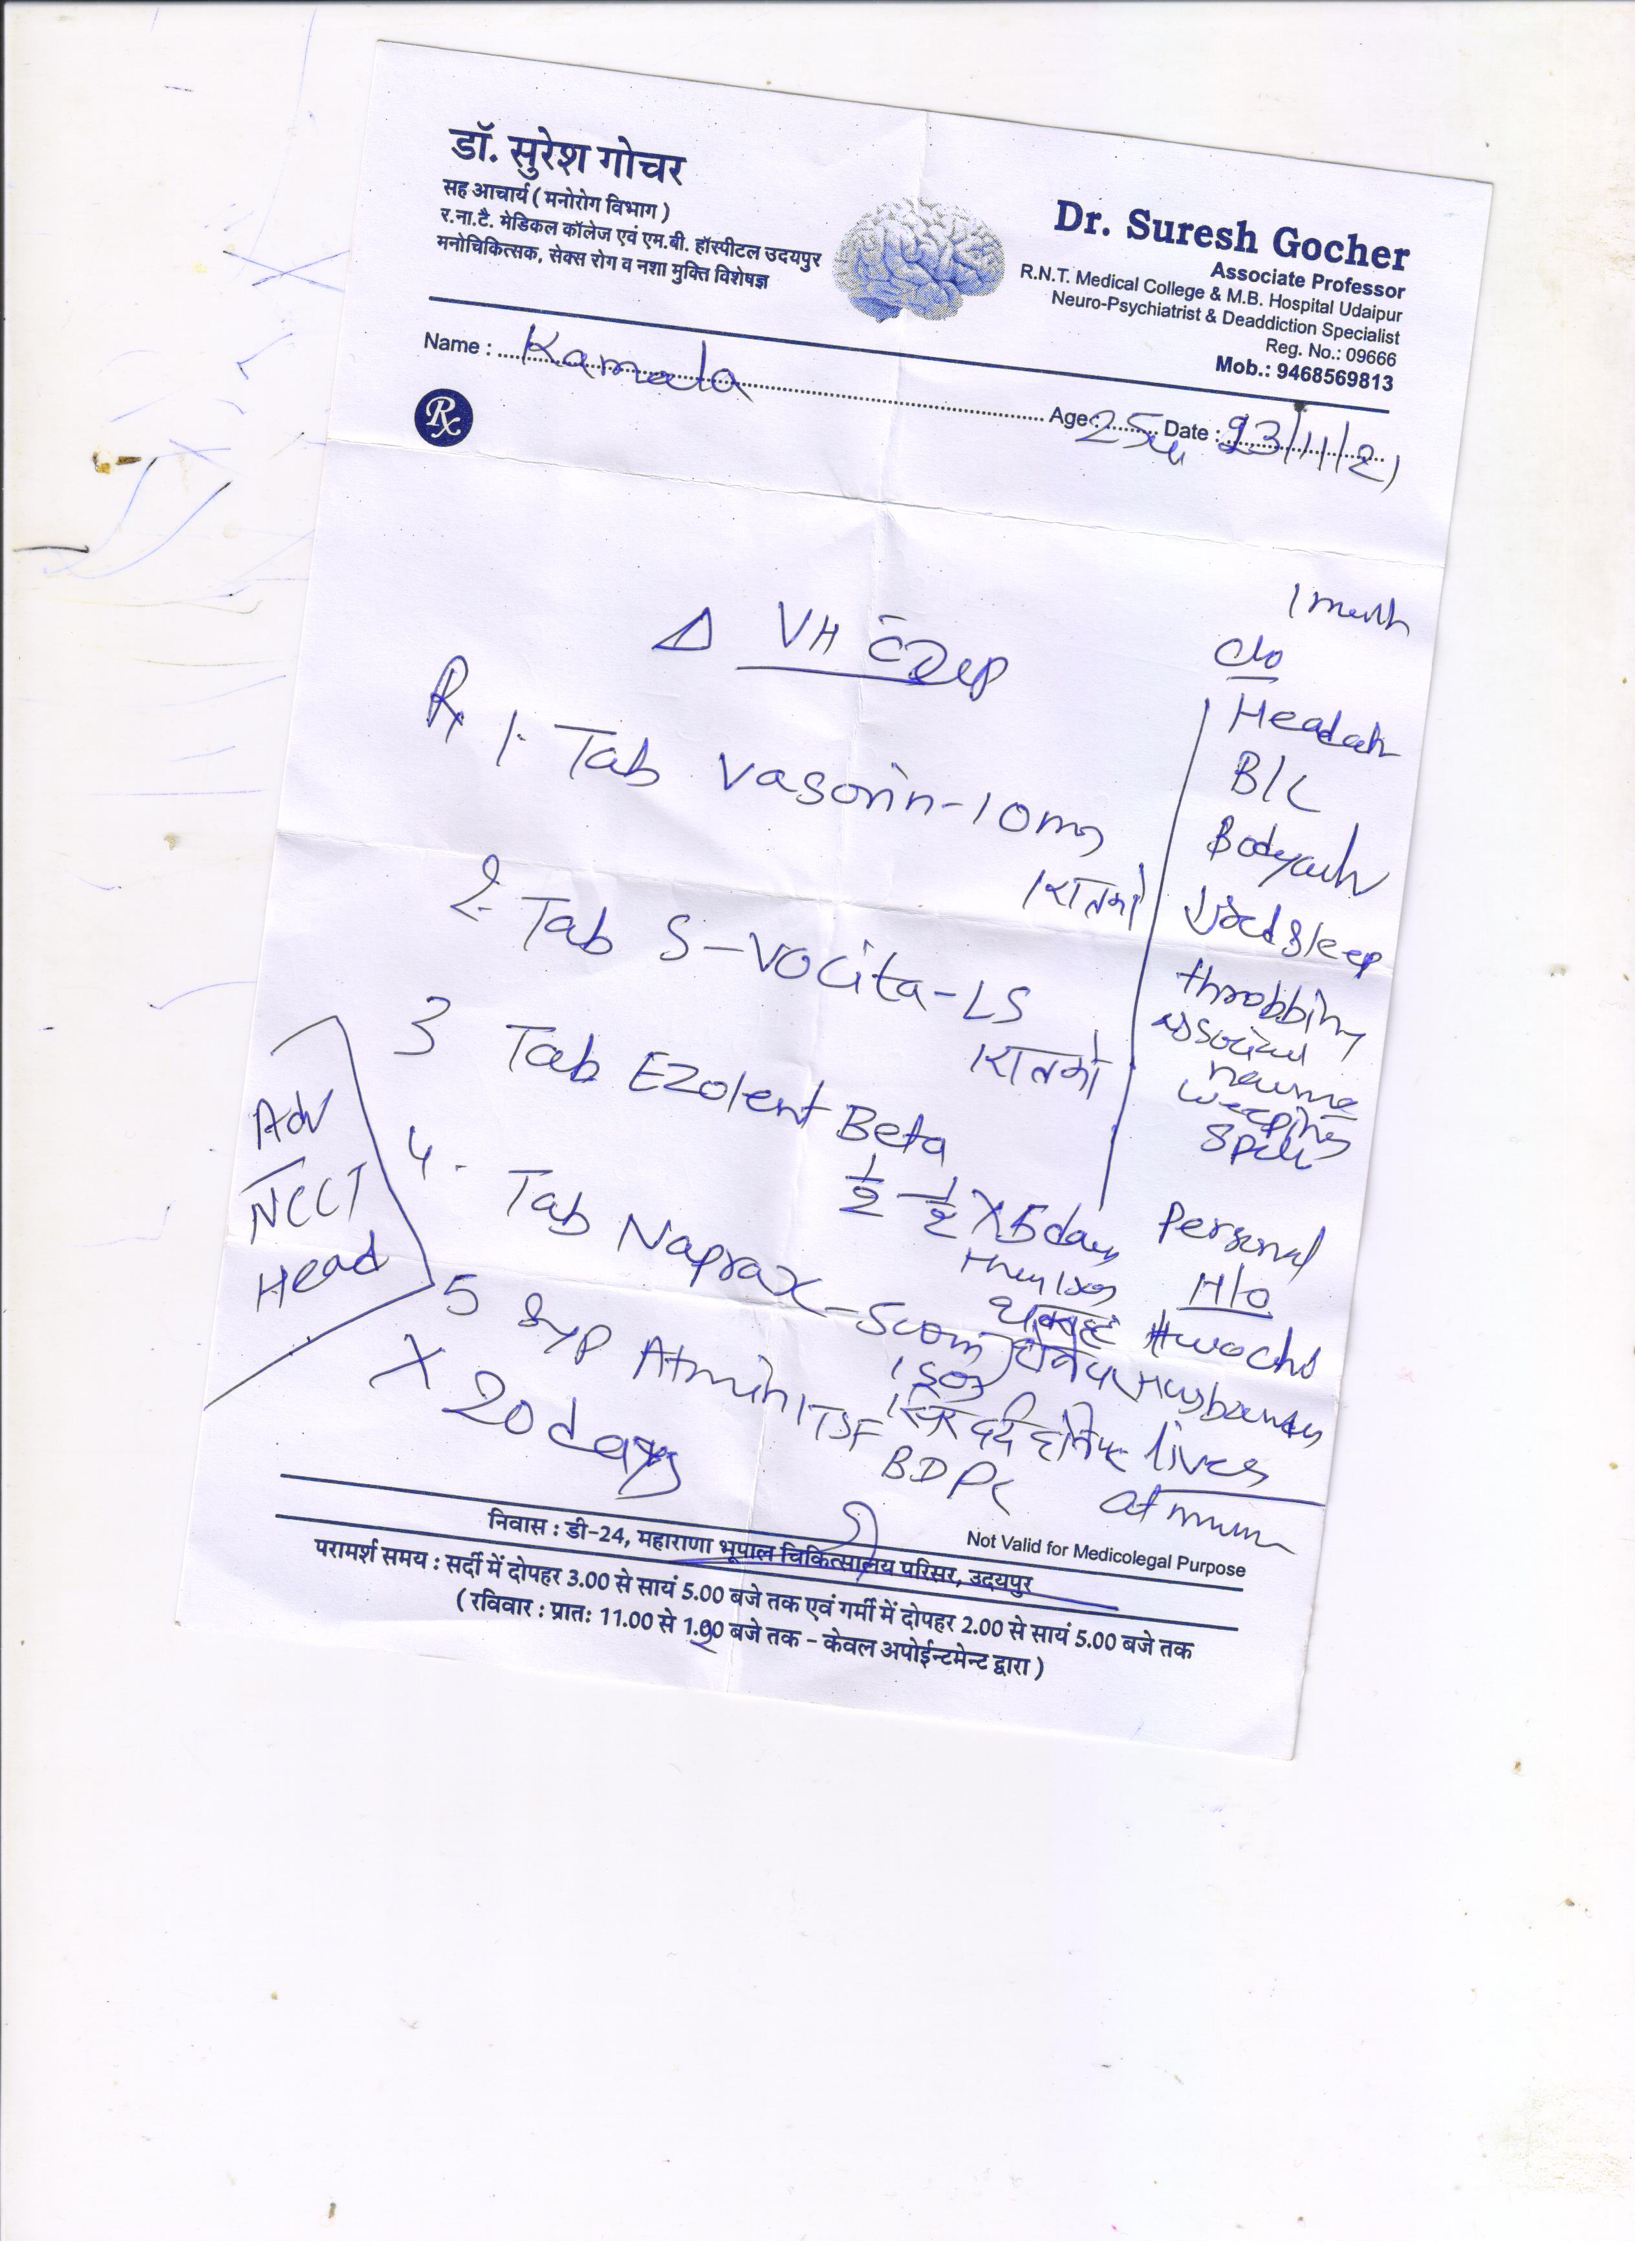 डॉ. सुरेश गोचर
सह आचार्य ( मनोरोग विभाग )
र.ना.टै. मेडिकल कॉलेज एवं एम.बी. हॉस्पीटल उदयपुर
मनोचिकित्सक, सेक्स रोग व नशा मुक्ति विशेषज्ञ
Dr. Suresh Gocher
Associate Professor
R.N.T. Medical College & M.B. Hospital Udaipur
Neuro-Psychiatrist & Deaddiction Specialist
Reg. No.: 09666
Mob.: 9468569813
Name : Kamala Age : 25 Date : 23/11/21
Rx
Δ VH c̄ Dep
Rx 1. Tab Vasorin-10mg
1 रातको
2. Tab S-Vocita-LS
1 रातको
3 Tab Ezolent Beta
1/2 - 1/2 X 5 days
4. Tab Naprax-500mg
सिर दर्द होने पर
5 Syp
BD
X 20 days
Adv
NCCT
Head
1 month
C/o
Headach
B/L
Bodyach
sleep
throbbing
weeping
spells
Personal
H/o
Husband
lives
at
Not Valid for Medicolegal Purpose
निवास : डी-24, महाराणा भूपाल चिकित्सालय परिसर, उदयपुर
परामर्श समय : सर्दी में दोपहर 3.00 से सायं 5.00 बजे तक एवं गर्मी में दोपहर 2.00 से सायं 5.00 बजे तक
( रविवार : प्रातः 11.00 से 1.00 बजे तक - केवल अपोईन्टमेन्ट द्वारा )